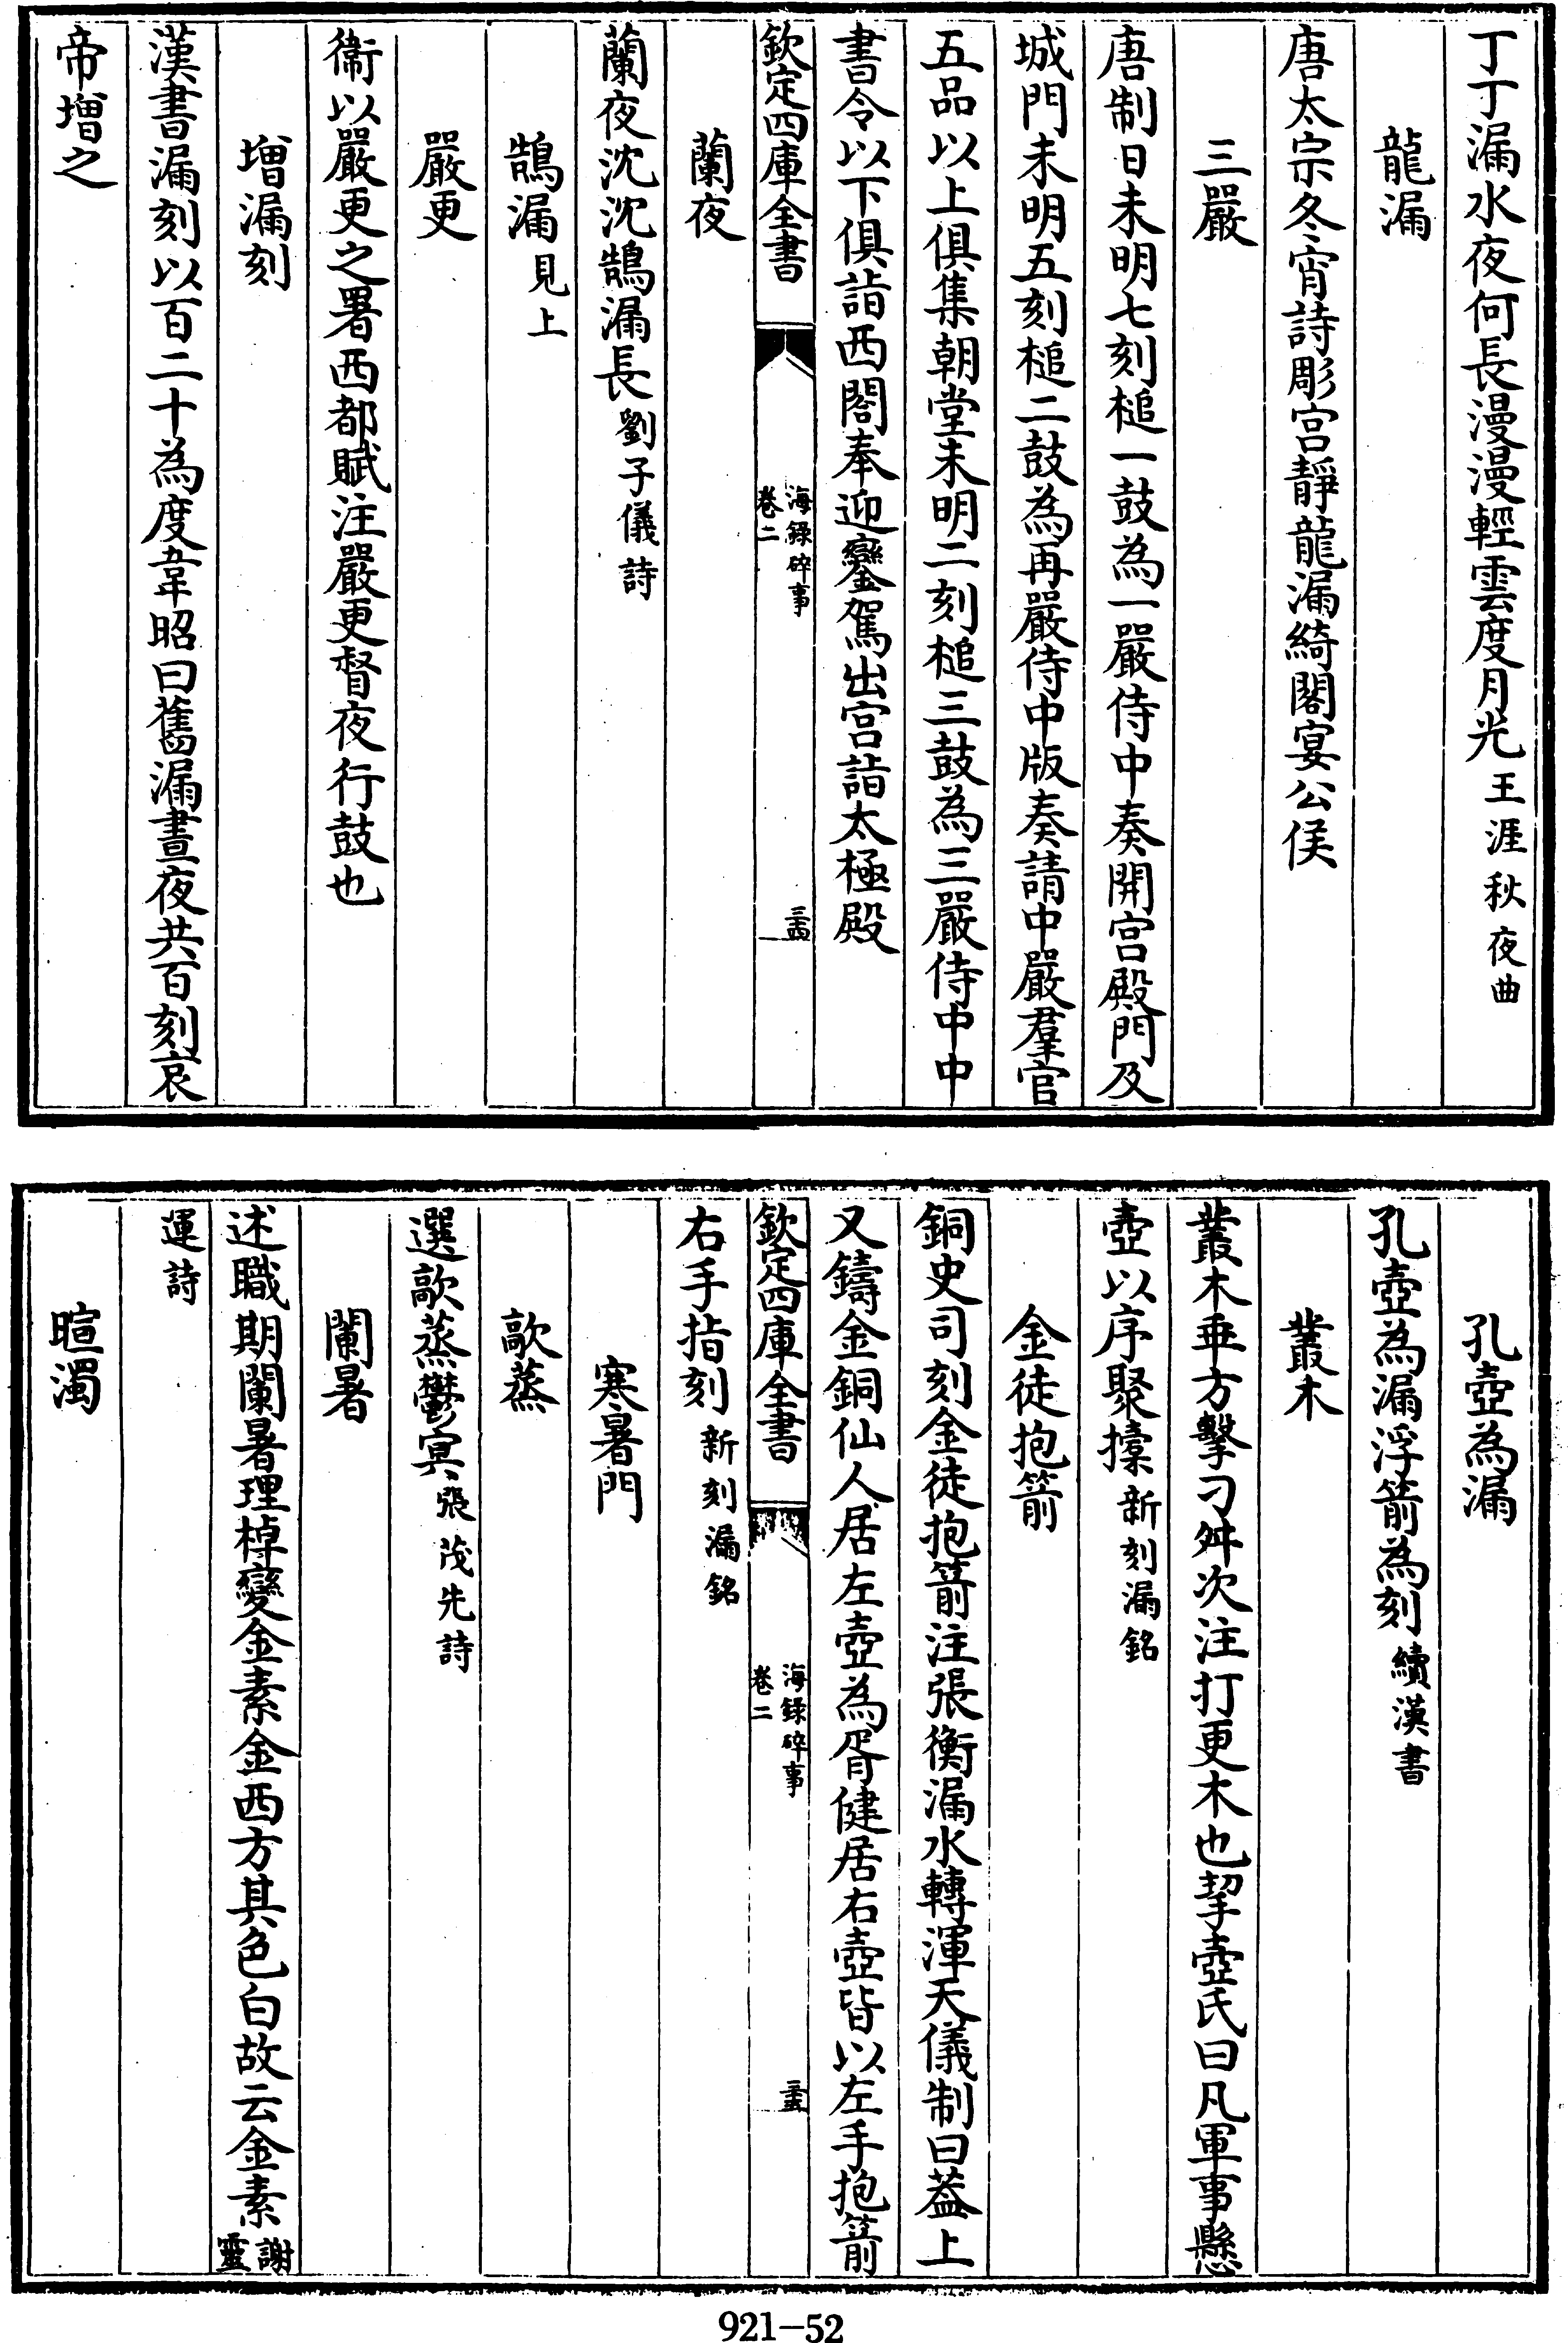 丁丁漏水夜何長漫漫輕雲度月光王涯秋夜曲
龍漏
唐太宗冬宵詩彫宫靜龍漏綺閣宴公侯
三嚴
唐制日未明七刻槌一鼓為一嚴侍中奏開宫殿門及
城門未明五刻槌二鼓為再嚴侍中版奏請中嚴羣官
五品以上俱集朝堂未明二刻槌三鼓為三嚴侍中中
書令以下俱詣西閤奉迎鑾駕出宫詣太極殿
欽定四庫全書
海錄碎事
卷二
三四
蘭夜
蘭夜沈沈鵠漏長劉子儀詩
鵠漏見上
嚴更
衞以嚴更之署西都賦注嚴更督夜行鼓也
増漏刻
漢書漏刻以百二十為度韋昭曰舊漏晝夜共百刻哀
帝増之
孔壺為漏
孔壺為漏浮箭為刻續漢書
叢木
叢木垂方擊刁舛次注打更木也挈壺氏曰凡軍事懸
壺以序聚㯓新刻漏銘
金徒抱箭
銅史司刻金徒抱箭注張衡漏水轉渾天儀制曰葢上
又鑄金銅仙人居左壺為胥健居右壺皆以左手抱箭
欽定四庫全書
海錄碎事
卷二
三五
右手指刻新刻漏銘
寒暑門
歊蒸
選歊蒸鬱冥張茂先詩
闌暑
述職期闌暑理棹變金素金西方其色白故云金素謝靈
運詩
暄濁
921-52